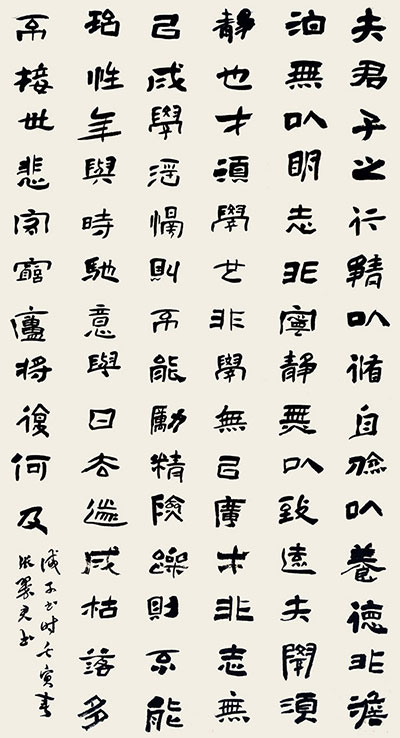 夫君子之行靜以脩身儉以養德非澹
泊無以明志非寧靜無以致遠夫學須
靜也才須學也非學無以廣才非志無
以成學淫慢則不能勵精險躁則不能
治性年與時馳意與日去遂成枯落多
不接世悲守窮廬將復何及
誡子书时壬寅春